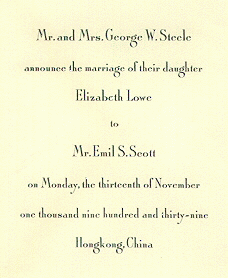 Mr. and Mrs. George W. Steele
announce the marriage of their daughter
Elizabeth Lowe
to
Mr. Emil S. Scott
on Monday, the thirteenth of November
one thousand nine hundred and thirty-nine
Hongkong, China